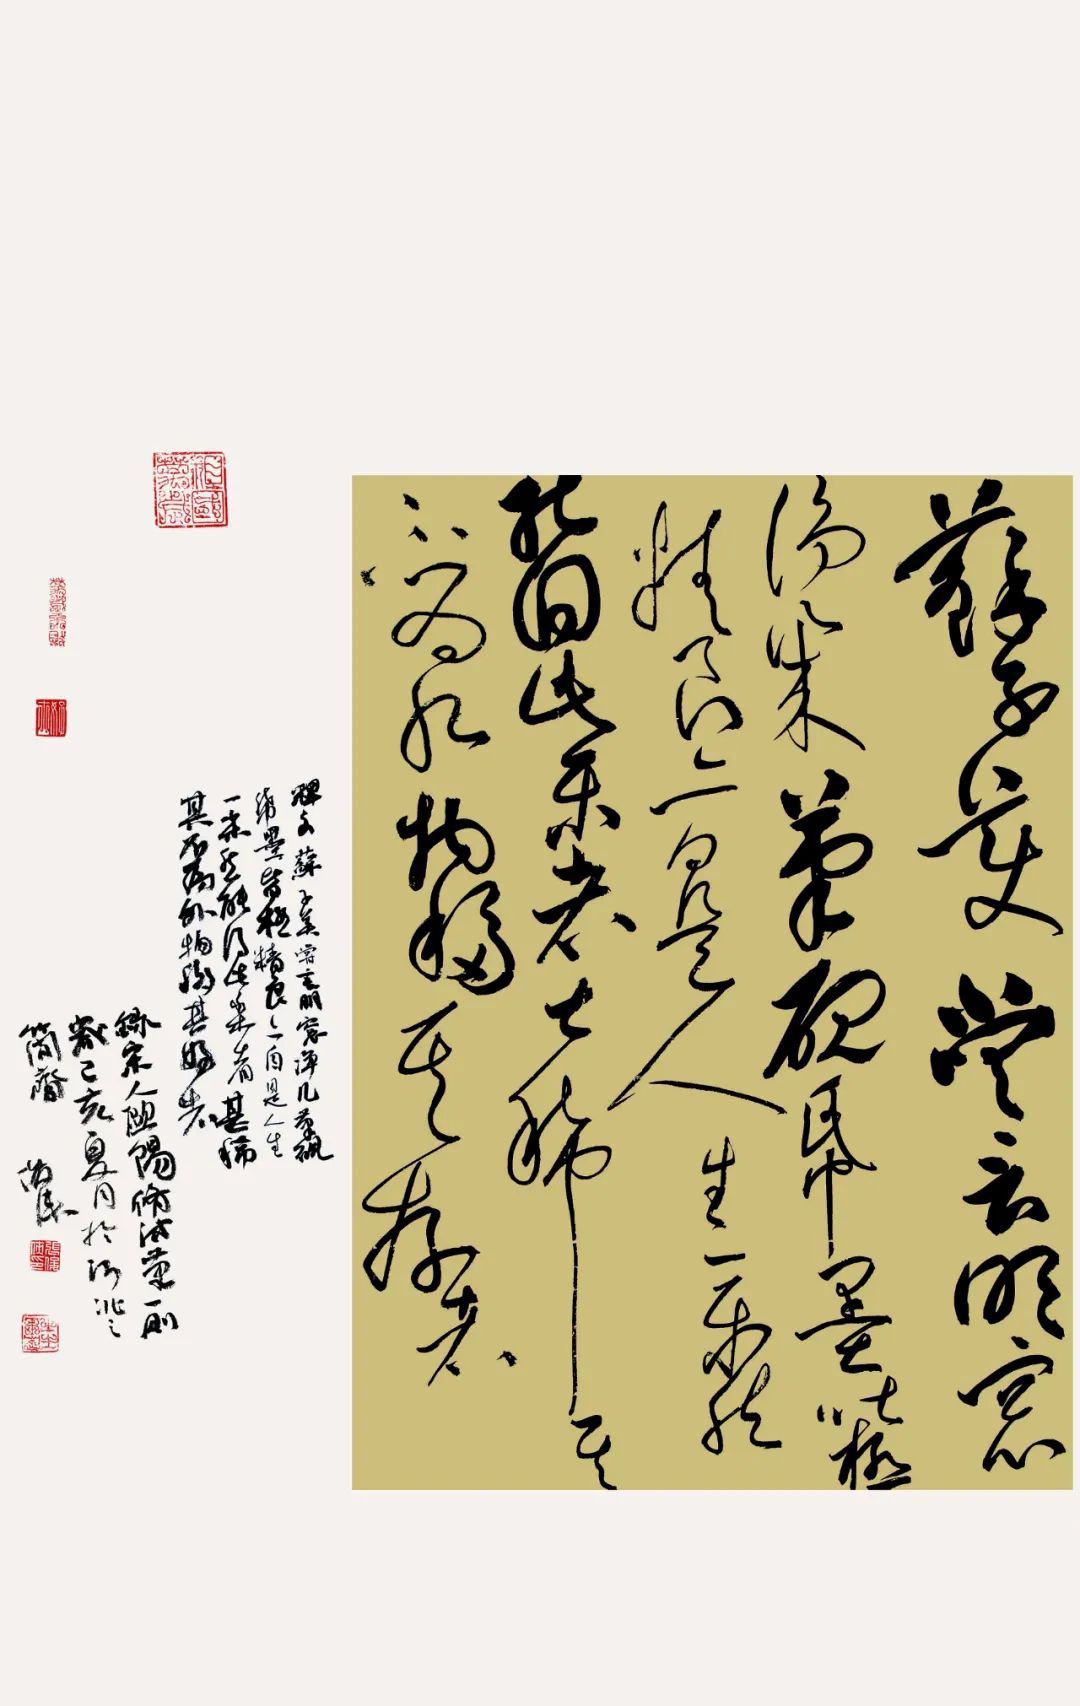 蘇子美嘗言明窓
净几筆硯紙墨皆極
精良亦自是人生一樂然
能得此樂者甚稀其
不為外物移其好者
釋文蘇子美嘗言明窓净几筆硯
紙墨皆極精良亦自是人生
一樂然能得此樂者甚稀
其不為外物移其好者
錄宋人歐陽脩試筆一則
歲己亥夏月於
簡齋